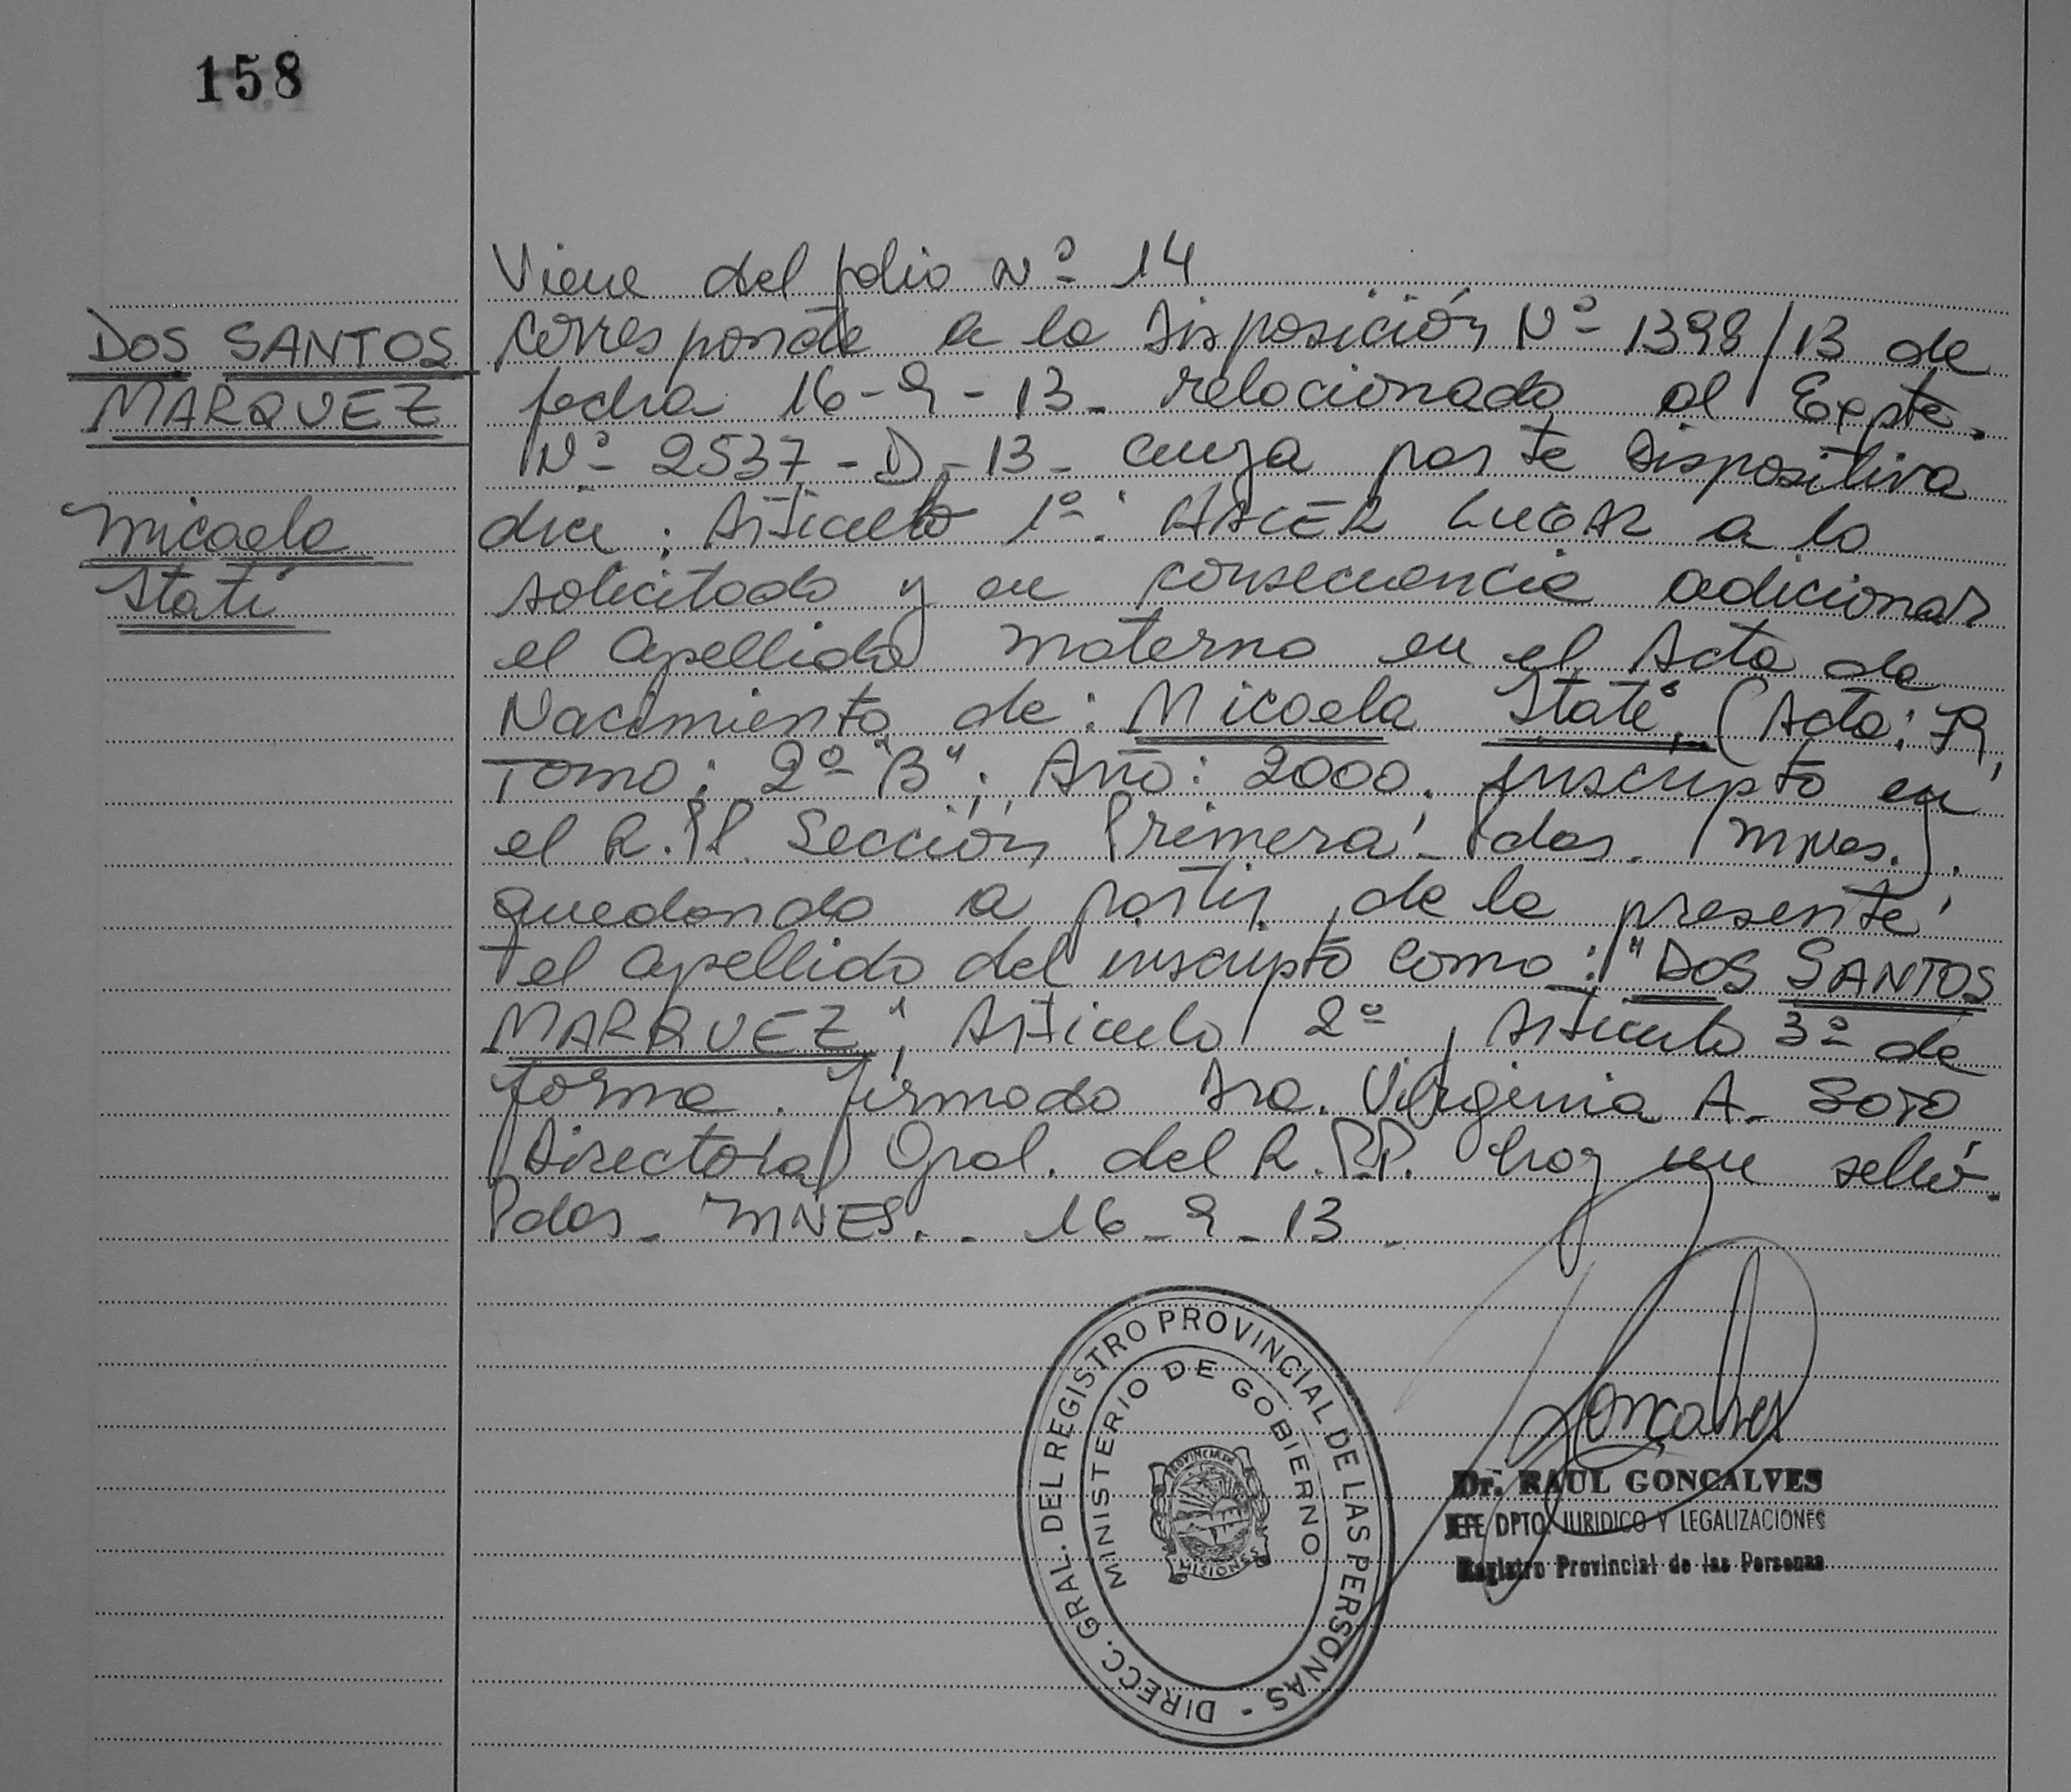 158
Viene del folio Nº 14
DOS SANTOS
MARQUEZ
Micaela
Statí
Corresponde a la Disposición Nº 1398/13 de
fecha 16-9-13- relacionado al Expte.
Nº 2537-D-13- cuya parte Dispositiva
dice: Artículo 1º: HACER LUGAR a lo
solicitado y en consecuencia adicionar
el apellido materno en el Acta de
Nacimiento de: Micaela Statí, (Acta: 79,
Tomo: 2º "B"; Año: 2000. inscripto en
el R.P.P. Sección Primera - Pdas. (Mnes.).
quedando a partir de la presente
el apellido del inscripto como: "DOS SANTOS
MARQUEZ"; Artículo 2º, Artículo 3º de
forma. Firmado Dra. Virginia A. SOTO
(Directora) Gral. del R.P.P. hay un sello.
Pdas- MNES.- 16-9-13-
DIRECC. GRAL. DEL REGISTRO PROVINCIAL DE LAS PERSONAS -
MINISTERIO DE GOBIERNO
PROVINCIA DE
MISIONES
Goncalves
Dr. RAUL GONCALVES
JEFE DPTO. JURIDICO Y LEGALIZACIONES
Registro Provincial de las Personas